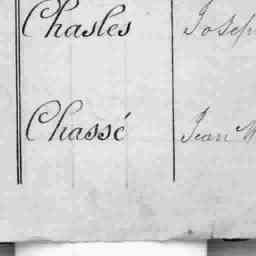 Chasles Joseph
Chassé Jean